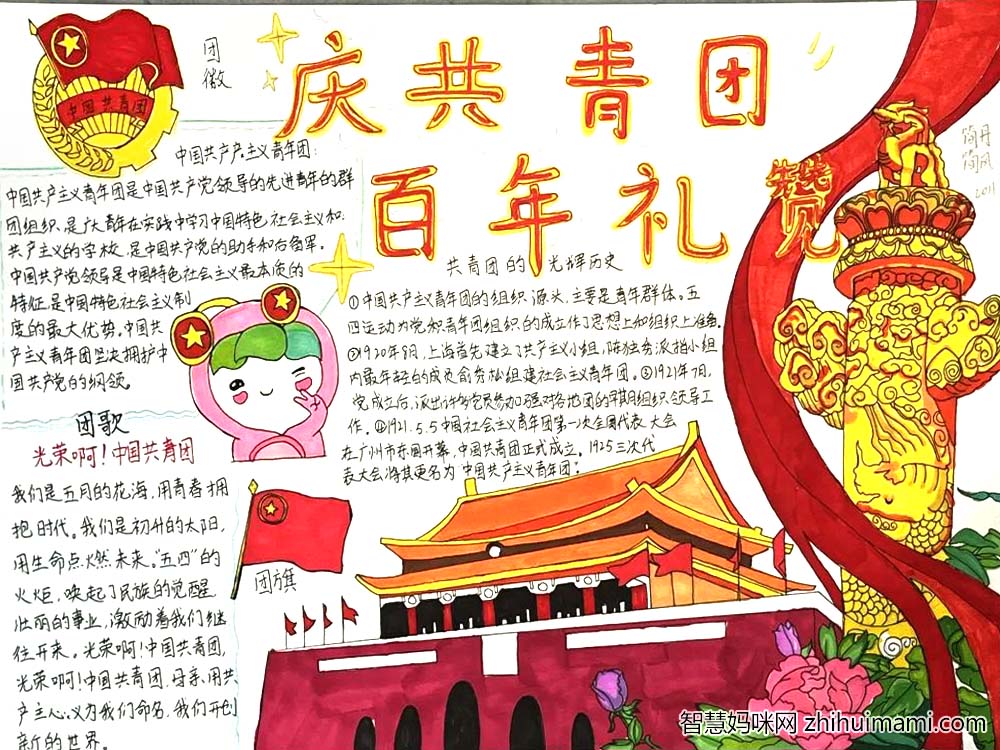 中国共青团
团
徽
庆共青团
百年礼赞
简丹
简风
中国共产产主义青年团:
中国共产主义青年团是中国共产党领导的先进青年的群
团组织,是广大青年在实践中学习中国特色社会主义和
共产主义的学校,是中国共产党的助手和后备军。
中国共产党领导是中国特色社会主义最本质的
特征,是中国特色社会主义制
度的最大优势。中国共
产主义青年团坚决拥护中
国共产党的纲领。
共青团的光辉历史
①中国共产主义青年团的组织源头,主要是青年群体。五
四运动为党和青年团组织的成立作了思想上和组织上准备.
②1920年8月,上海首先建立了共产主义小组,陈独秀派指小组
内最年轻的成员俞秀松组建社会主义青年团。③1921年7月,
党成立后,派出许多党员参加强对各地团的早期组织领导工
作。④1921.5.5中国社会主义青年团第一次全国代表大会
在广州市东园开幕,中国共青团正式成立。1925三次代
表大会将其更名为"中国共产主义青年团"。
团歌
光荣啊!中国共青团
我们是五月的花海,用青春拥
抱时代。我们是初升的太阳,
用生命点燃未来。"五四"的
火炬,唤起了民族的觉醒
壮丽的事业,激励着我们继
往开来。光荣啊!中国共青团,
光荣啊!中国共青团.母亲用共
产主义为我们命名,我们开创
新的世界。
团旗
智慧妈咪网 zhihuimami.com